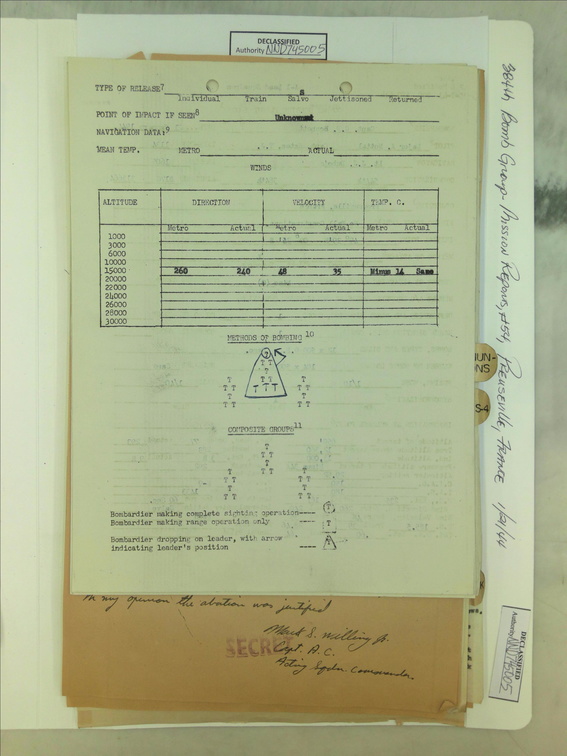 DECLASSIFIED
Authority NND745005
TYPE OF RELEASE7
Individual Train Salvo Jettisoned Returned
POINT OF IMPACT IF SEEN8 Unknown
NAVIGATION DATA:9
MEAN TEMP. METRO ACTUAL
WINDS
ALTITUDE DIRECTION VELOCITY TEMP. C.
Metro Actual Metro Actual Metro Actual
1000
3000
6000
10000
15000 260 240 48 35 Minus 14 Same
20000
22000
24000
26000
28000
30000
METHODS OF BOMBING 10
T T
T
T T T
T T T T T T T
T T
T T T T
COMPOSITE GROUPS11
T
T T
T
T T T T
T T T T
T T
T T T T
Bombardier making complete sighting operation---- T
Bombardier making range operation only ---- T
Bombardier dropping on leader, with arrow
indicating leader's position ---- T
In my opinion the abortion was justified
Mark S. Milling Jr.
Capt. A.C.
Acting Sqdn. Commander.
SECRET
384th Bomb Group - Mission Reports, #54, Preuseville, France 1/21/44
DECLASSIFIED
Authority NND745005
S-4